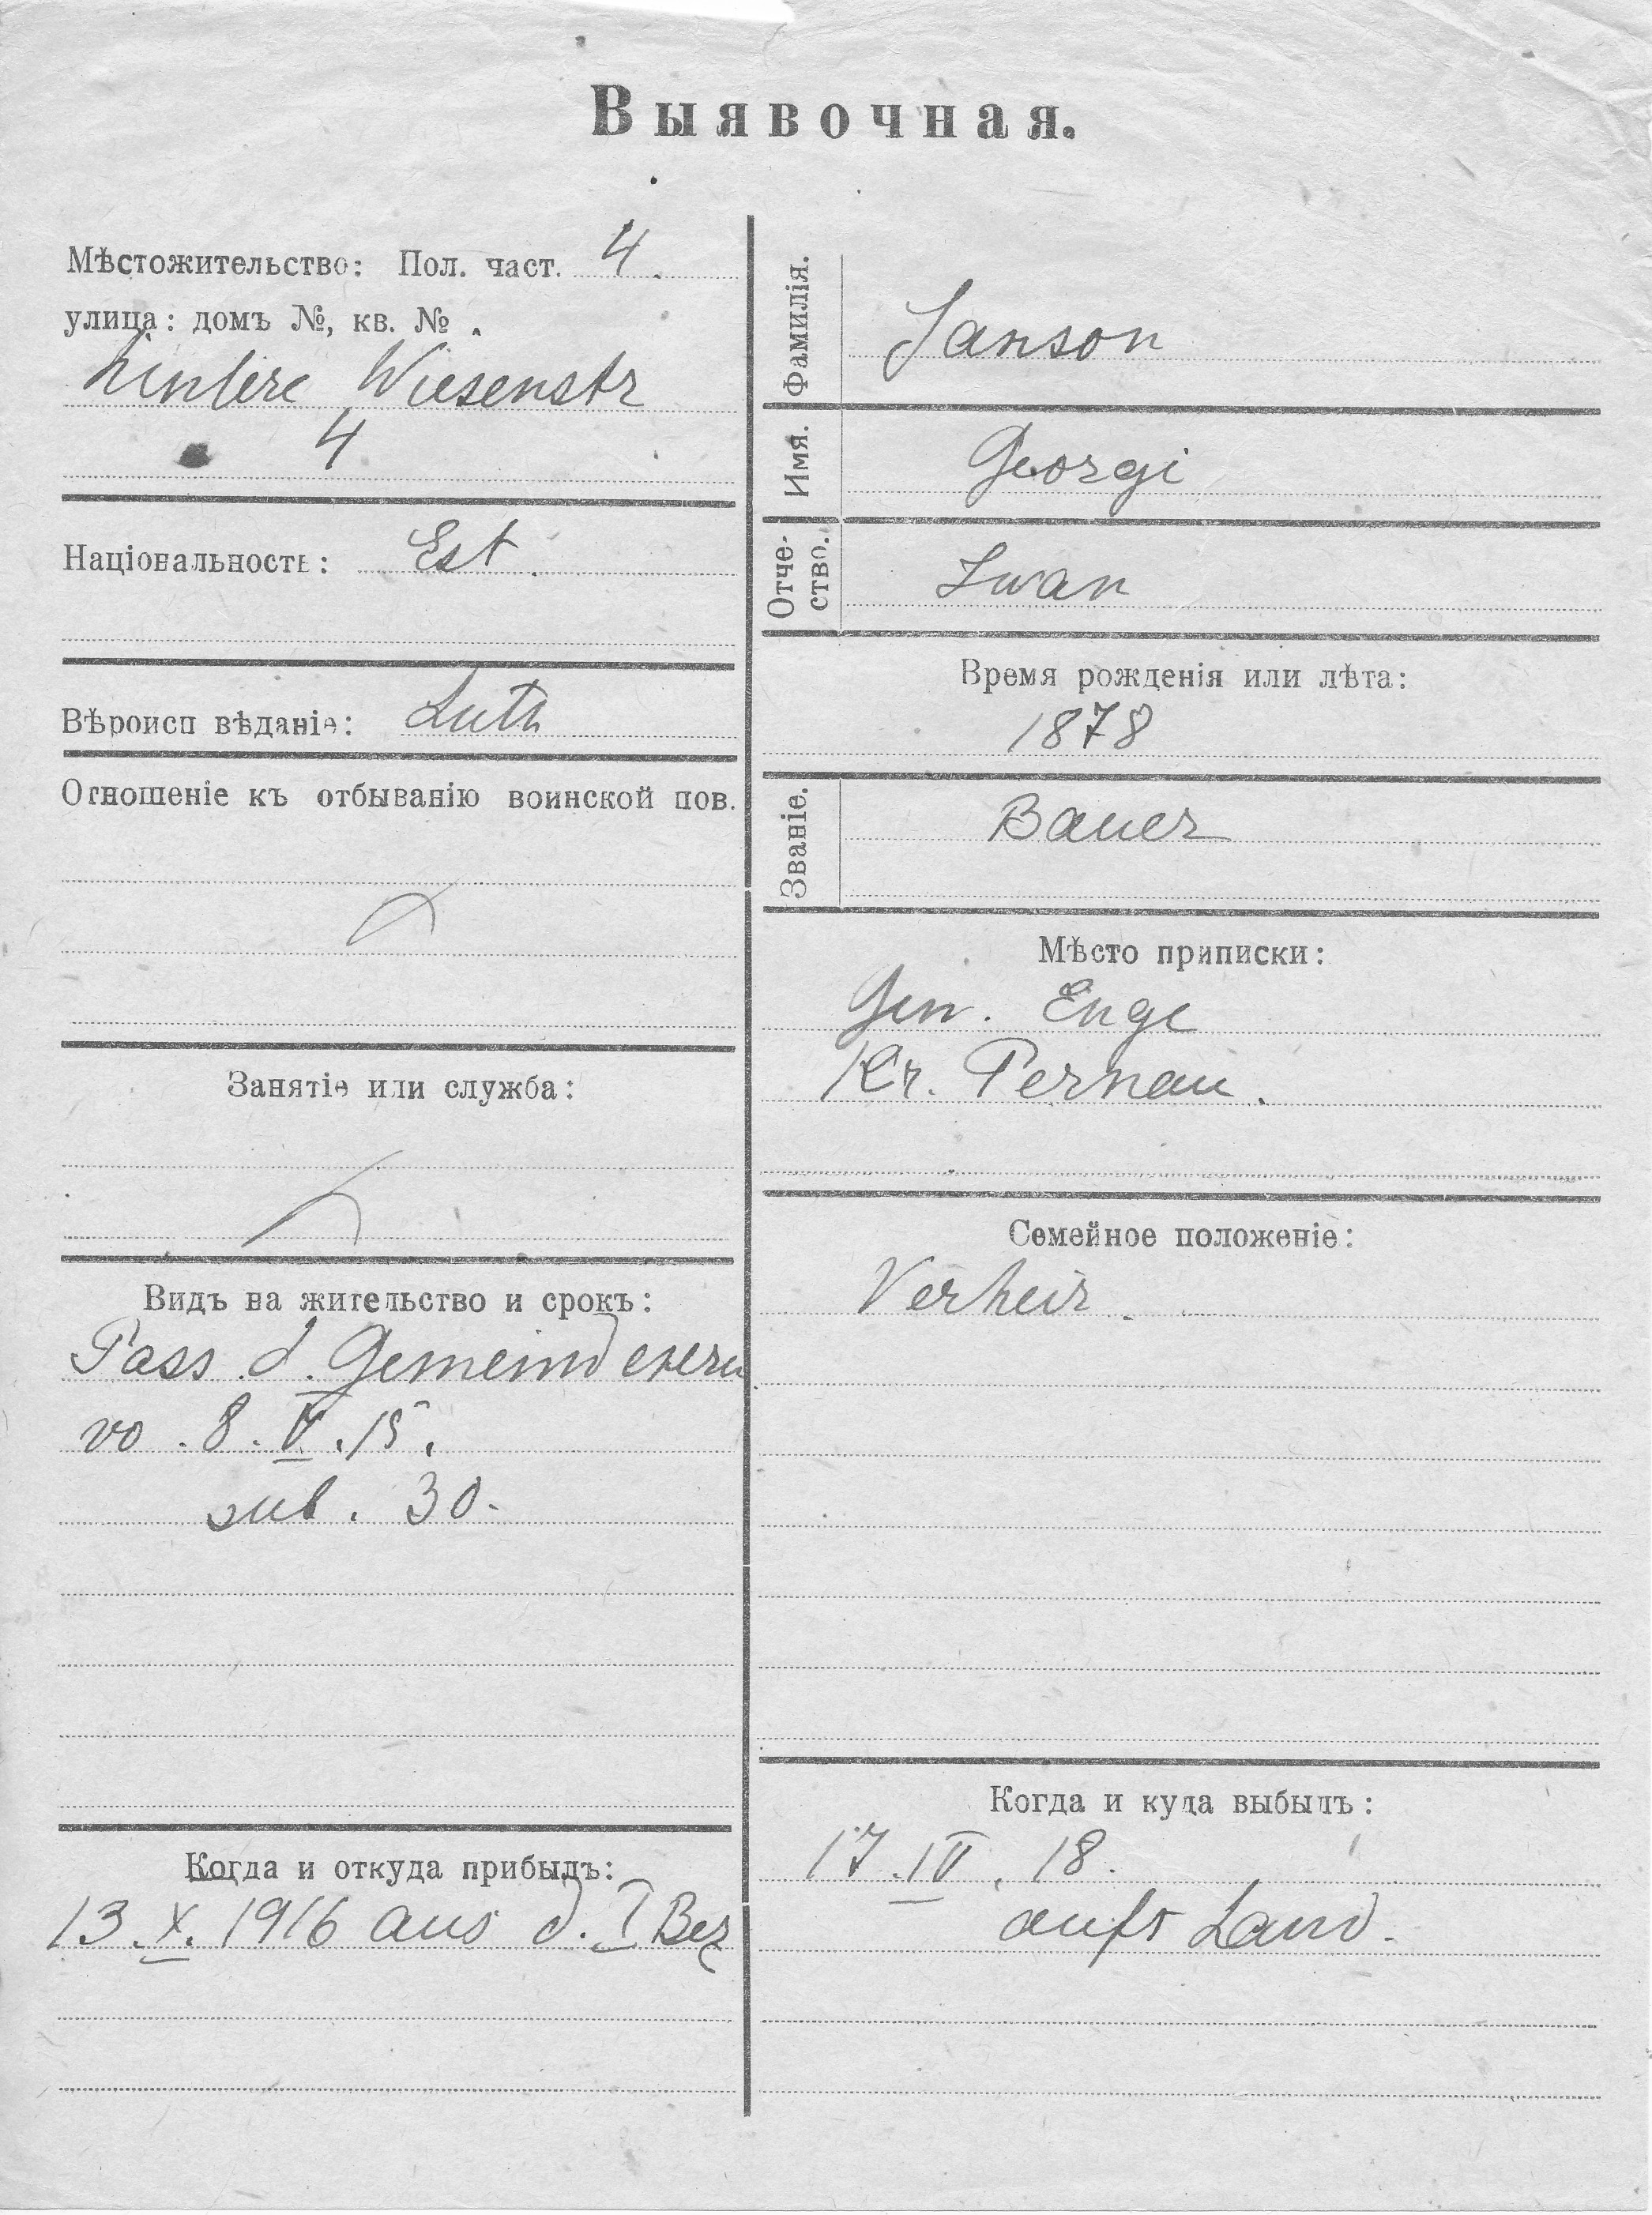 Выявочная.
Мѣстожительство: Пол. част. 4.
улица: домъ №, кв. №
hintere Wiesenstr
4
Національность: Est.
Вѣроисп вѣданіе: Luth
Отношеніе къ отбыванію воинской пов.
Занятіе или служба:
Видъ на жительство и срокъ:
Pass d. Gemeind
vo. 8. V. 15.
sub. 30.
Когда и откуда прибылъ:
13. X. 1916 aus d. I Bez
Фамилія.
Janson
Имя.
Georgi
Отче-
ство.
Iwan
Время рожденія или лѣта:
1878
Званіе.
Bauer
Мѣсто приписки:
Gem. Enge
Kr. Pernau.
Семейное положеніе:
Verheir.
Когда и куда выбылъ:
17. IV. 18.
aufs Land.